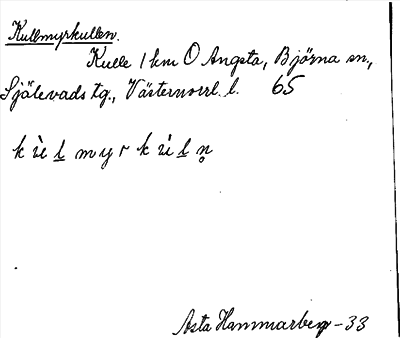 Kullmyrkullen.
Kulle 1 km O Angsta, Björna sn,
Själevads tg., Västernorrl. l. 65
k ù l m y r k ù l n
Asta Hammarberg -33